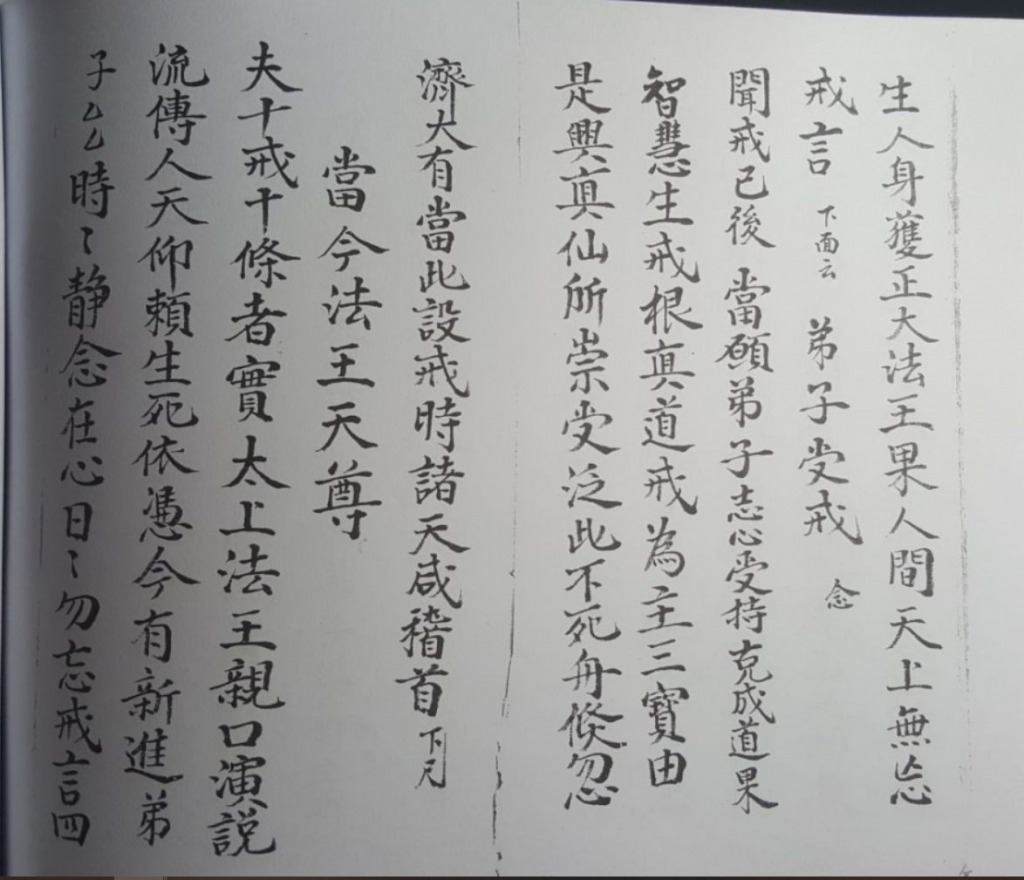 生人身獲正大法王果人間天上無忘
戒言 下面云 弟子受戒 念
聞戒已後當願弟子志心受持克成道果
智慧生戒根真道戒為主三寶由
是興真仙所崇受泛此不死舟倏忽
濟大有當此設戒時諸天咸稽首
當今法王天尊
夫十戒十條者實太上法王親口演說
流傳人天仰賴生死依憑今有新進弟
子乙乙時〻靜念在心日〻勿忘戒言四